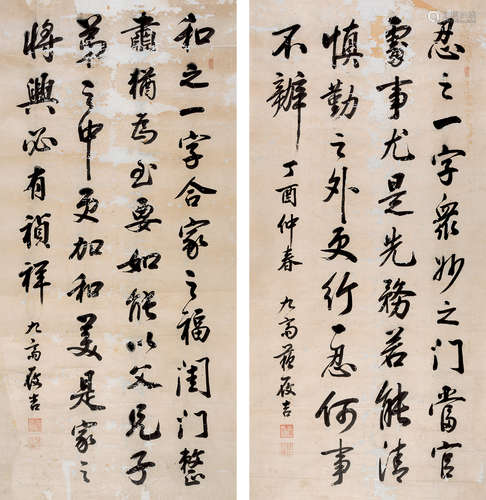 忍之一字眾妙之門當官
處事尤是先務若能清
慎勤之外更行一忍何事
不辦 丁酉仲春 九齋蘇履吉
和之一字合家之福閨門整
肅猶為至要如能以父兄子
弟之中更加和美是家之
將興必有禎祥 九齋履吉